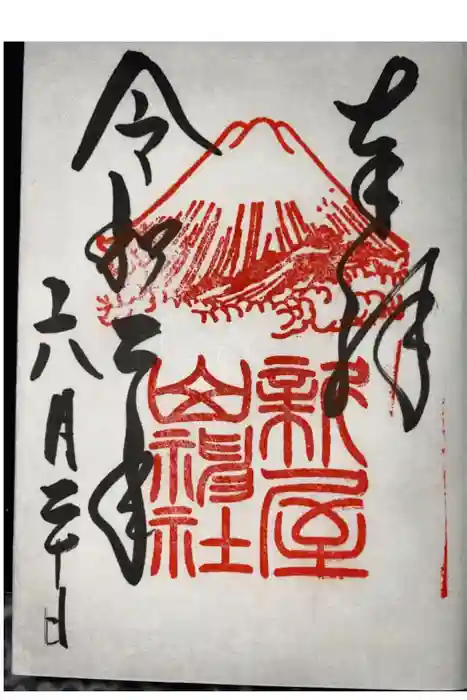 奉拝
新屋
山神社
令和二年
六月二十日